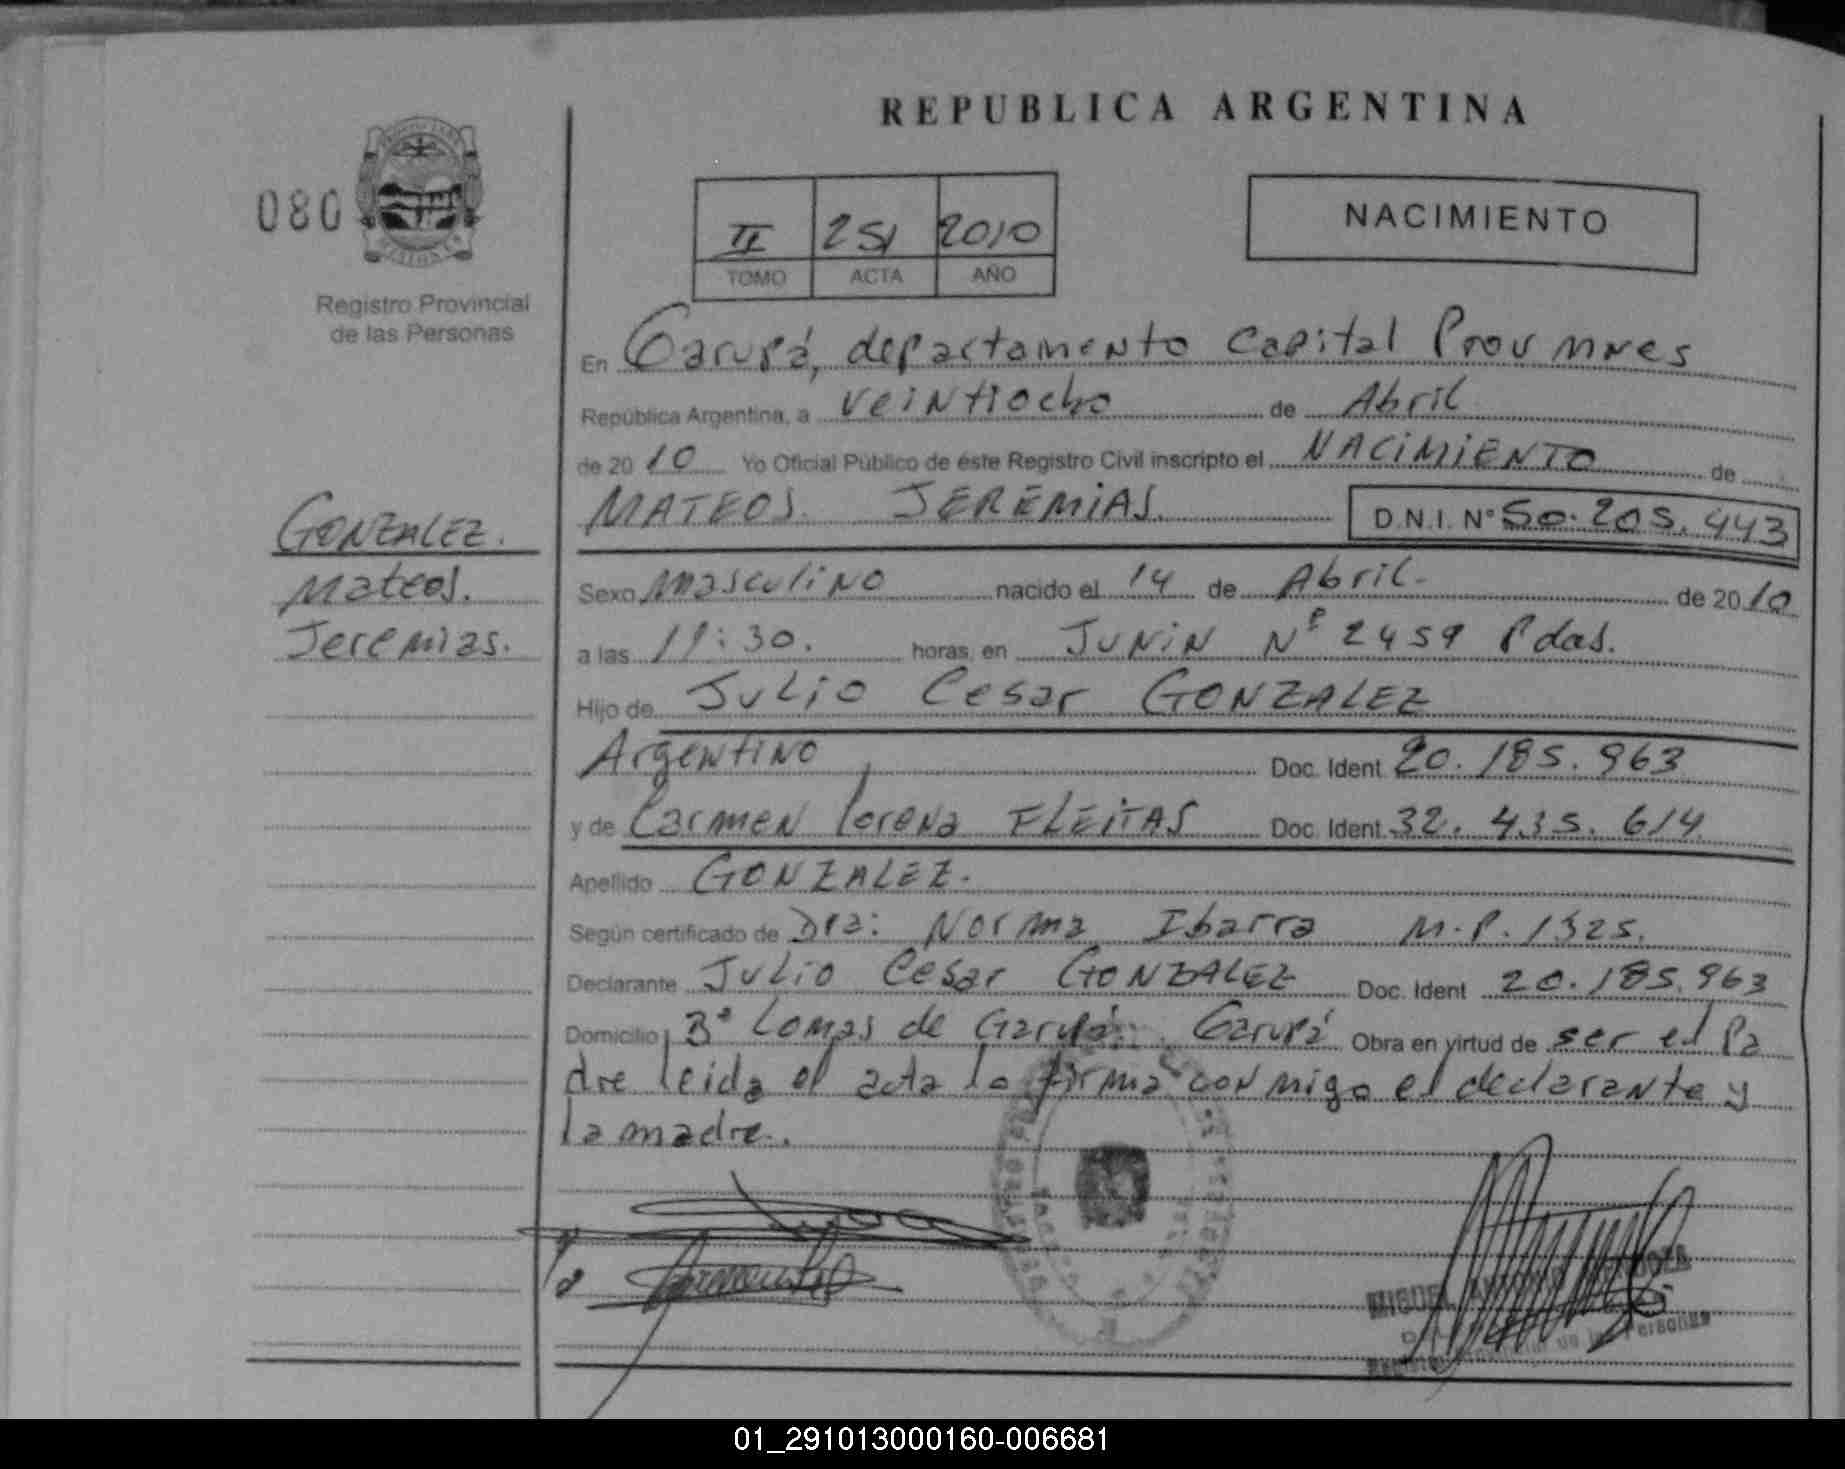 REPUBLICA ARGENTINA
080
Registro Provincial
de las Personas
II 251 2010
TOMO ACTA AÑO
NACIMIENTO
En Garupá, departamento Capital Prov mnes
República Argentina, a veintiocho de Abril
de 2010 Yo Oficial Público de éste Registro Civil inscripto el NACIMIENTO de
MATEOS JEREMIAS. D.N.I. N° 50.205.443
GONZALEZ.
Mateos.
Jeremias.
Sexo masculino nacido el 14 de Abril. de 2010
a las 11:30. horas, en JUNIN Nº 2459 Pdas.
Hijo de Julio Cesar GONZALEZ
Argentino Doc. Ident 20.185.963
y de Carmen lorena FLEITAS Doc. Ident 32.435.614
Apellido GONZALEZ.
Según certificado de Dra: Norma Ibarra M.P. 1325.
Declarante Julio Cesar GONZALEZ Doc. Ident 20.185.963
Domicilio Bº Lomas de Garupá. Garupá Obra en virtud de ser el Pa
dre leida el acta la firma conmigo el declarante y
la madre.
MIGUEL ANTONIO
de las Personas
01_291013000160-006681